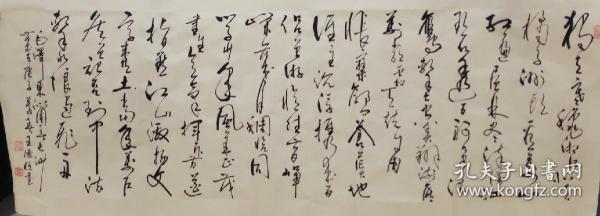 独立寒秋湘江北去
橘子洲头看万
山红遍层林尽染
漫江碧透百舸争流
鹰击长空鱼翔浅底
万类霜天竞自由
怅寥廓问苍茫大地
谁主沉浮携来百
侣曾游忆往昔峥
嵘岁月稠恰同
学少年风华正茂
书生意气挥斥方遒
指点江山激扬文
字粪土当年万户
侯曾记否到中流
击水浪遏飞舟
毛泽东沁园春长沙
孔夫子旧书网
book.kongfz.com